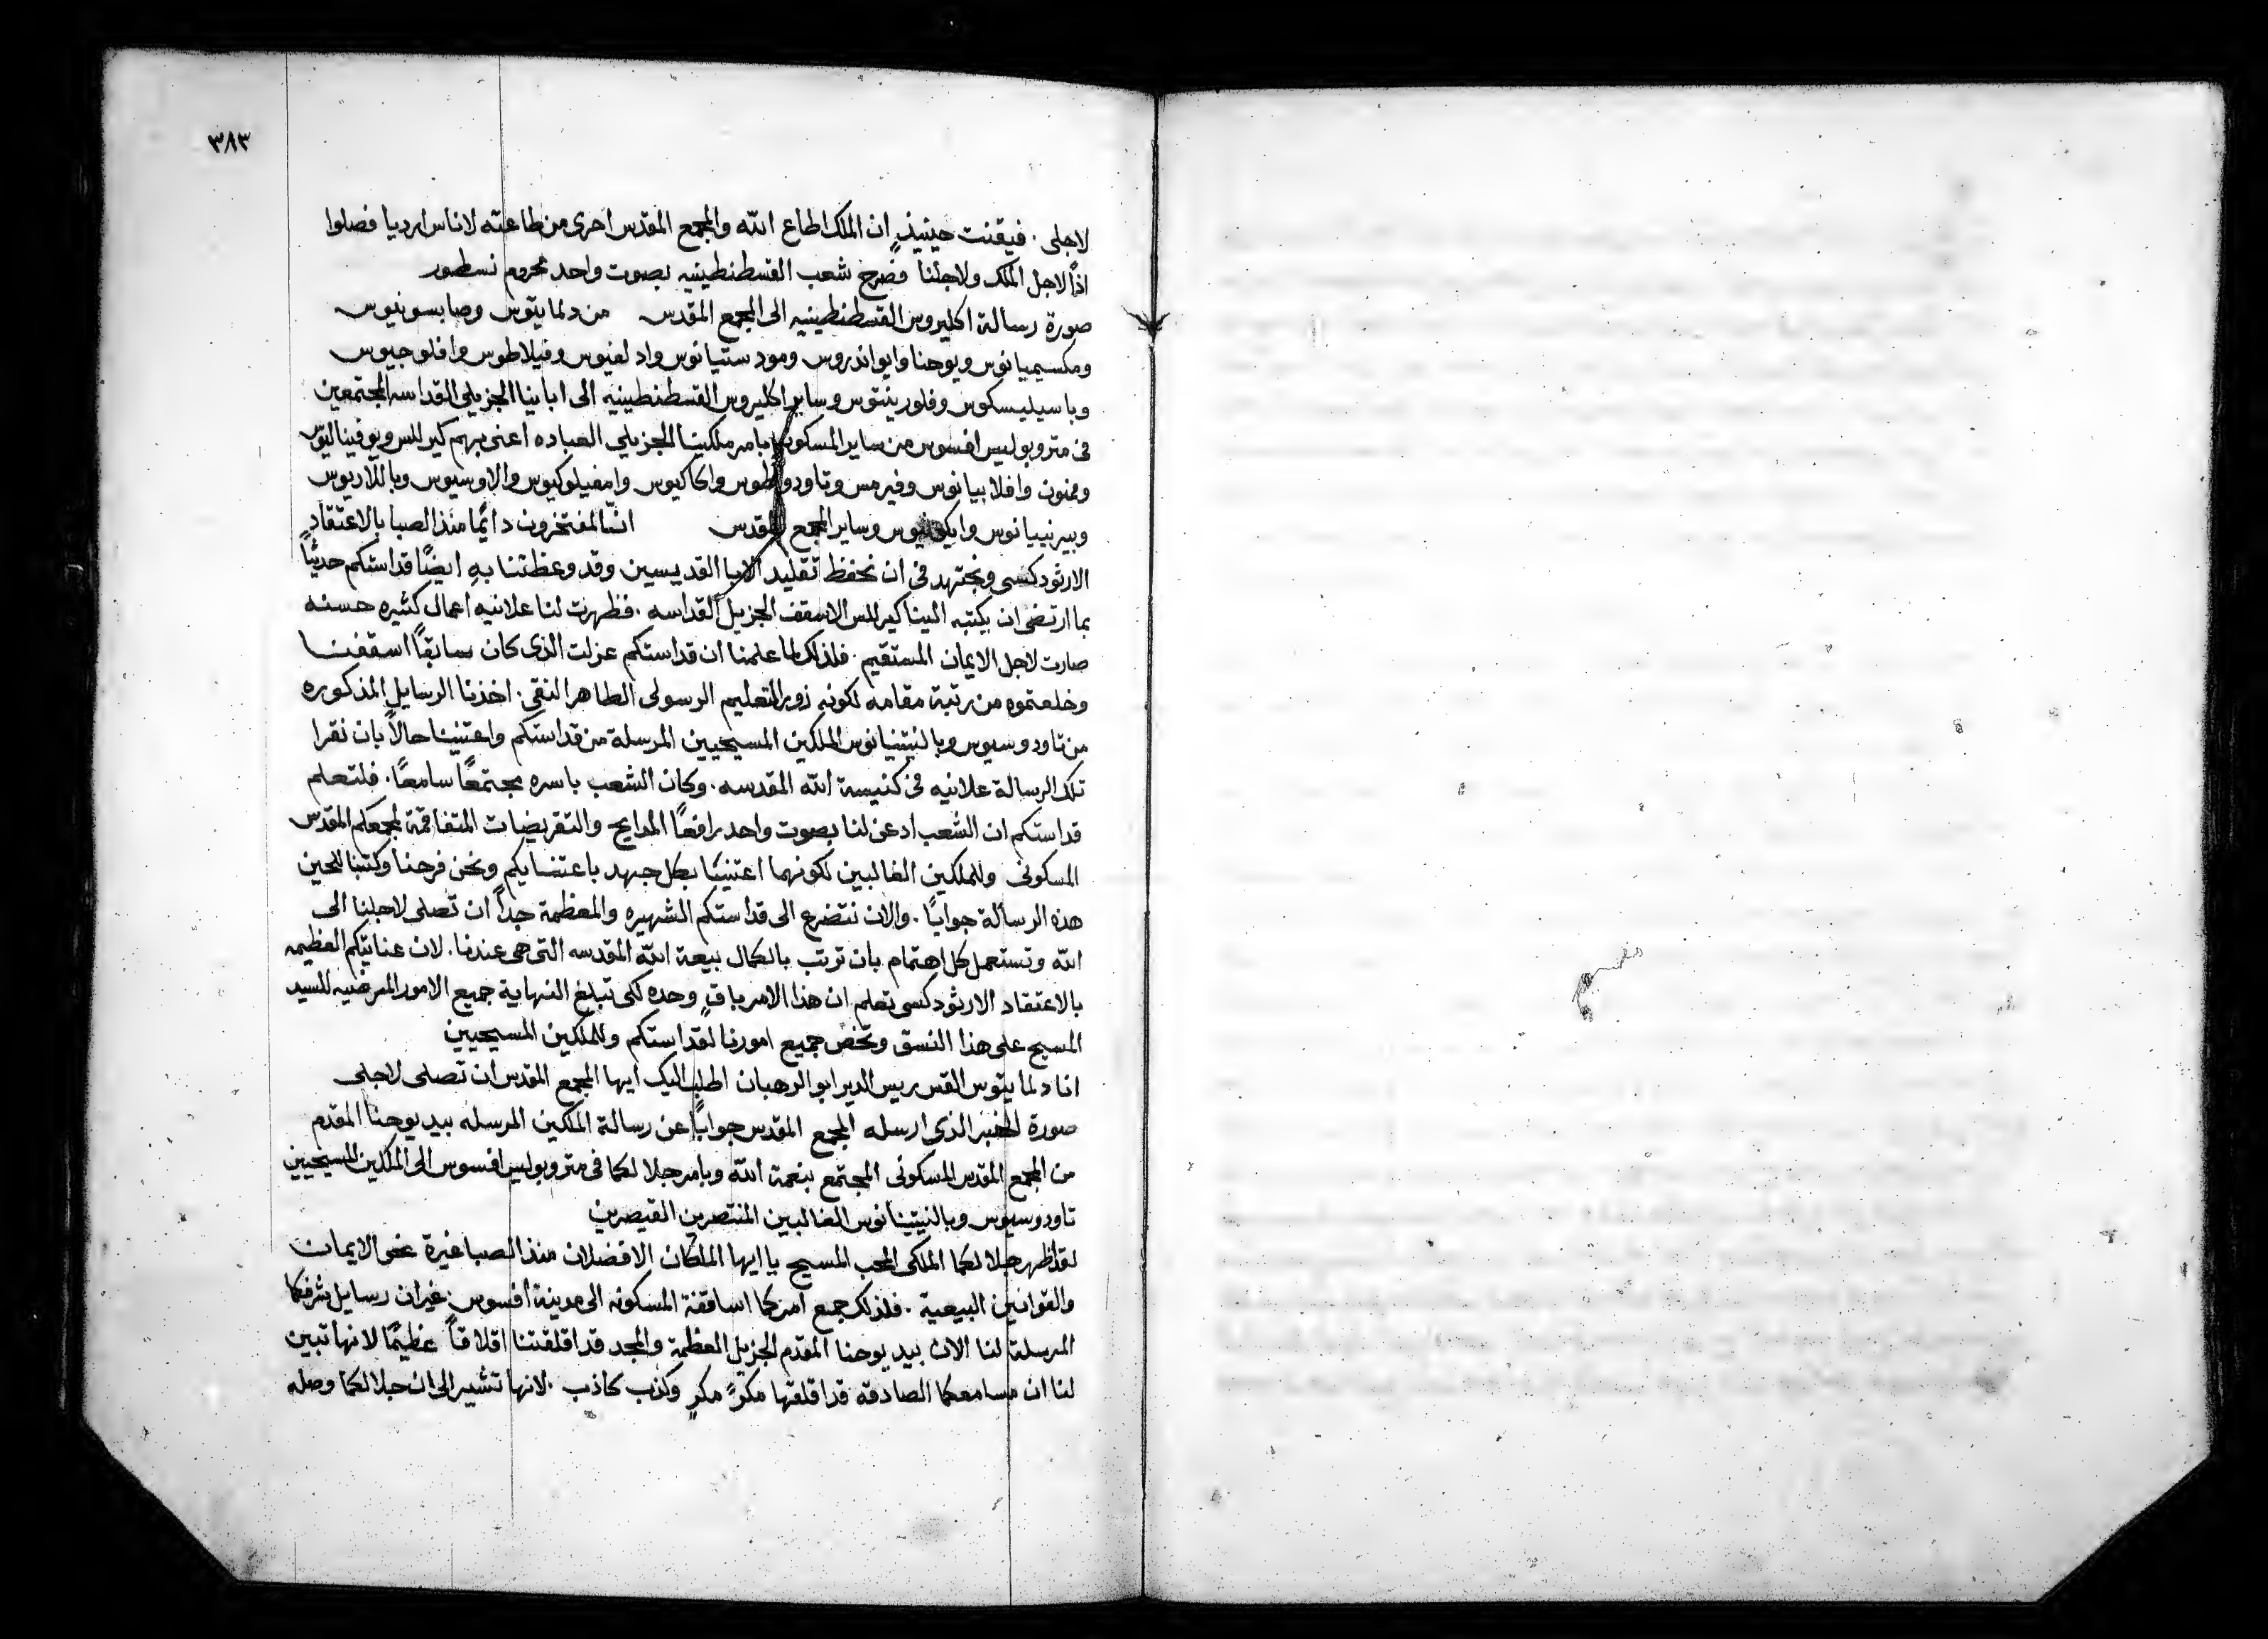 ٣٨٣
لاجلى . فيقنت حينيذٍ ان الملك اطاع الله والمجمع المقدس احرى من طاعته لاناس ارديا فصلوا
اذًا لاجل الملك ولاجلنا فصرخ شعب القسطنطينيه بصوت واحد محروم نسطور
صورة رسالة اكليروس القسطنطينيه الى المجمع المقدس من دلماتيوس وصابسونيوس
ومكسيميانوس ويوحنا وايواندروس ومودستيانوس وادلفيوس وفيلاطوس وافلوجيوس
وباسيليسكوس وفلورينتوس وساير اكليروس القسطنطينيه الى ابابينا الجزيلى القداسه المجتمعين
فى متروبوليس افسوس من ساير المسكونه بامر ملكينا الجزيلي العباده اعنى بهم كيرللس ويوفيناليوس
وممنون وافلابيانوس وفيرمس وتاودوطوس واكاكيوس وامفيلوكيوس والاوسيوس وباللاديوس
وبيرنييانوس وايكونيوس وساير المجمع المقدس اننا لمفتخرون دايمًا منذ الصبا بالاعتقاد
الارثودكسى ونجتهد فى ان نحفظ تقليد الابا القديسين وقد وعظتنا بهِ ايضًا قداستكم حديثًا
بما ارتضى ان يكتبه الينا كيرللس الاسقف الجزيل القداسه . فظهرت لنا علانيه اعمال كثيره حسنه
صارت لاجل الايمان المستقيم . فلذلك لما علمنا ان قداستكم عزلت الذى كان سابقًا اسقفنا
وخلعتموه من رتبة مقامه لكونه زور التعليم الرسولى الطاهر النقى . اخذنا الرسايل المذكوره
من تاودوسيوس وبالنيتينيانوس الملكين المسيحيين المرسلة من قداستكم واعتنينا حالاً بان نقرا
تلك الرسالة علانيه فى كنيسة الله المقدسه . وكان الشعب باسره مجتمعًا سامعًا . فلتعلم
قداستكم ان الشعب ادعن لنا بصوت واحد رافعًا المدايح والتقريضات المتفاقمة لمجمعكم المقدس
المسكونى وللملكين الغالبين لكونهما اعتنيا بكل جهد باعتنايكم ونحن فرحنا وكتبنا للحين
هذه الرسالة جوابًا . والان نتضرع الى قداستكم الشهيره والمعظمة جداً ان تصلى لاجلنا الى
الله وتستعمل كل اهتمام بان ترتب بالكمال بيعة الله المقدسه التى هى عندنا . لان عنايتكم العظيمه
بالاعتقاد الارثودكسى تعلم ان هذا الامر باقٍ وحده لكى تبلغ النهاية جميع الامور المرضيه للسيد
المسيح على هذا النسق وتخص جميع امورنا لقداستكم وللملكين المسيحيين
انا دلماتيوس القس ريس الدير ابو الرهبان اطلب اليك ايها المجمع المقدس ان تصلى لاجلى
صورة الخبر الذى ارسله المجمع المقدس جوابًا عن رسالة الملكين المرسله بيد يوحنا المقدم
من المجمع المقدس المسكونى المجتمع بنعمة الله وبامر جلالكما فى متروبوليس افسوس الى الملكين المسيحيين
تاودوسيوس وبالنيتينانوس الغالبين المنتصرين القيصرين
لقد اظهر جلالكما الملكى المحب المسيح يا ايها الملكان الافضلان منذ الصبا غيرة نحو الايمان
والقوانين البيعية . فلذلك جمع امركما اساقفة المسكونه الى مدينة افسوس . غير ان رسايل شرفكما
المرسلة لنا الان بيد يوحنا المقدم الجزيل العظمة والمجد قد اقلقتنا اقلاقاً عظيمًا لانها تبين
لنا ان مسامعكما الصادقه قد اقلقها مكرٌ مكرٍ وكذب كاذب . لانها تشير الى ان جلالكما وصله